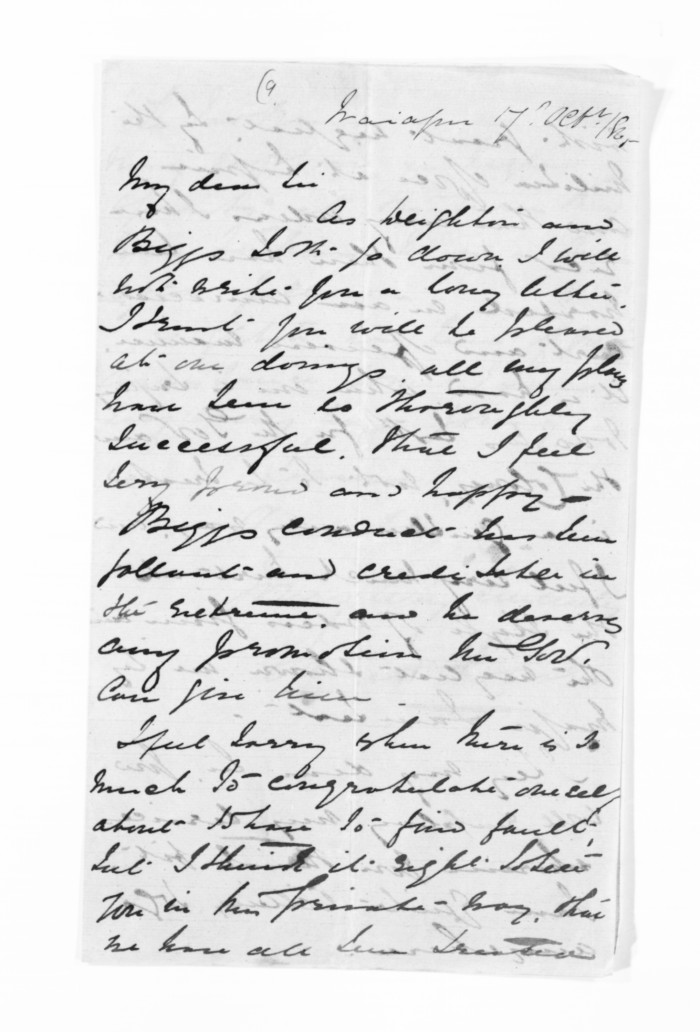 (9
Waiapu 17th Octr. /65
My dear Sir
As Deighton and
Biggs both go down I will
not write you a long letter.
I trust you will be pleased
at our doings, all my plans
have been so thoroughly
successful. that I feel
very proud and happy –
Biggs conduct has been
gallant and creditable in
the extreme. and he deserves
any promotion the Govt.
can give him.
I feel sorry when there is so
much to congratulate oneself
about to have to find fault,
but I think it right to tell
you in this private way, that
we have all been treated